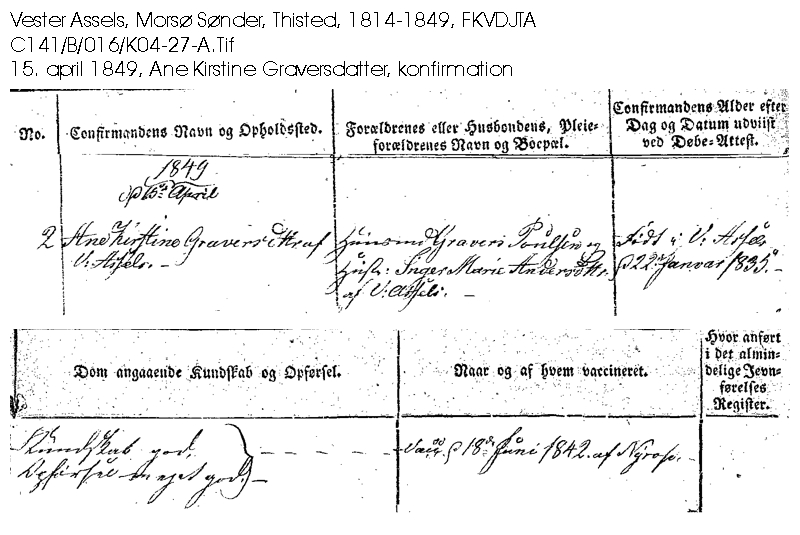 Vester Assels, Morsø Sønder, Thisted, 1814-1849, FKVDJTA
C141/B/016/K04-27-A.Tif
15. april 1849, Ane Kirstine Graversdatter, konfirmation
No.
Confirmandens Navn og Opholdssted.
Forældrenes eller Husbondens, Pleie-
forældrenes Navn og Boepæl.
Confirmandens Alder efter
Dag og Datum udviist
ved Døbe-Attest.
1849
d 15de April
2
Ane Kirstine Graversdttr af
V: Assels. –
Huusmd Gravers Poulsen og
Hustr: Inger Marie Andersdttr.
af V: Assels. –
Født i V: Assels
d 22 Januar 1835. –
Dom angaaende Kundskab og Opførsel.
Naar og af hvem vaccineret.
Hvor anført
i det almin-
delige Jevn-
førelses
Register.
Kundskab god,
Opførsel meget god. –
Vacc. d 18de Juni 1842. af